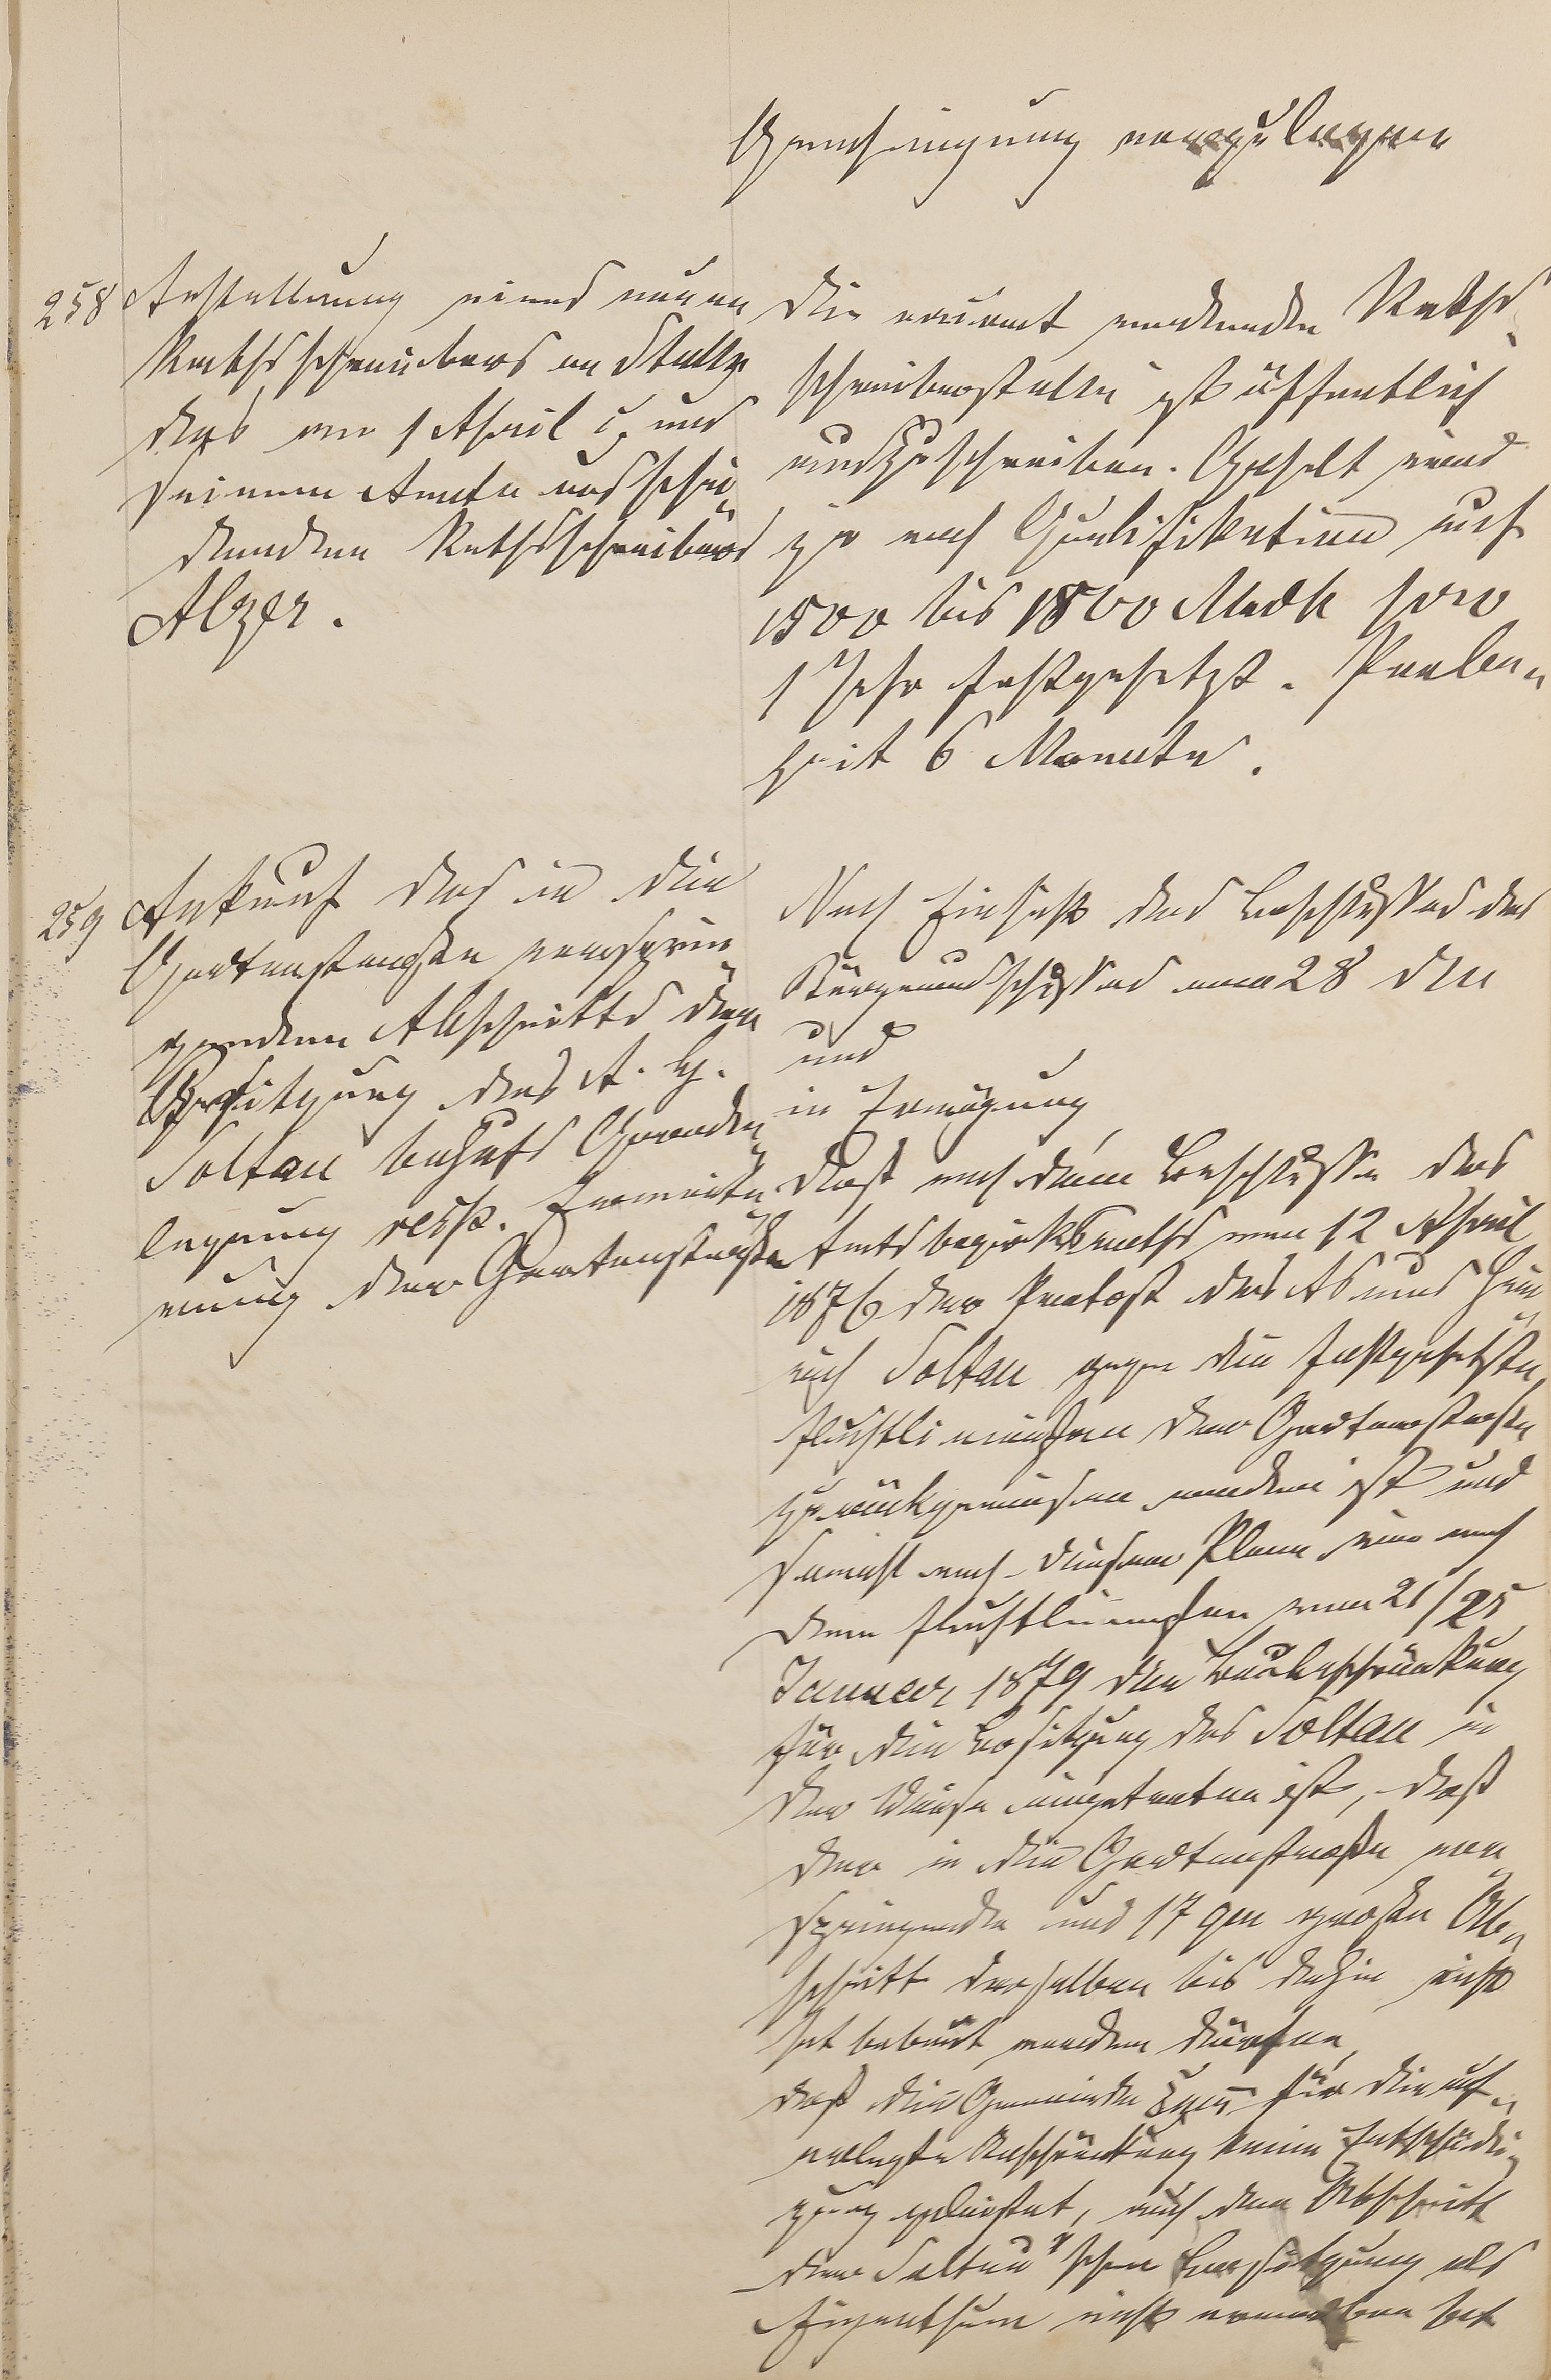 Genehmigung vorzulegen
258
Anstellung eines neuen
Rathsschreibers an Stelle
des am 1 April c. aus
seinem Amte ausschei-
denden Rathsschreibers
Alzer.
Die vacant werdende Raths-
schreiberstelle ist öffentlich
auszuschreiben. Gehalt wird
je nach Qualifikation auf
1500 bis 1800 Mark pro
1 Jahr festgesetzt. Probe-
zeit 6 Monate.
259
Ankauf des in die
Gartenstraße vorsprin-
genden Abschnitts der
Besitzung des A. H.
Soltau behufs Gerade-
legung resp. Erweite-
rung der Gartenstraße
Nach Einsicht des Beschlusses des
Bürgerausschusses vom 28 Dec
und
in Erwägung,
daß nach dem Beschlusse des
Amtsbezirksraths vom 12 April
1876 der Protest des Asmus Hein-
rich Soltau gegen die festgesetzten
Fluchtlinien der Gartenstraße
zurückgewiesen worden ist und
somit nach diesem Plane wie nach
dem Fluchtlinien vom 21/25
Januar 1879 die Baubeschränkung
für die Besitzung des Soltau in
der Weise eingetreten ist, daß
der in die Gartenstraße vor-
springende und 17 qm große Ab-
schnitt derselben bis dahin nicht
hat bebaut werden dürfen,
daß die Gemeinde für die auf-
erlegte Beschränkung keine Entschädi-
gung geleistet, auch den Abschnitt
der Soltau'schen Besitzung als
Eigenthum nicht erworben hat